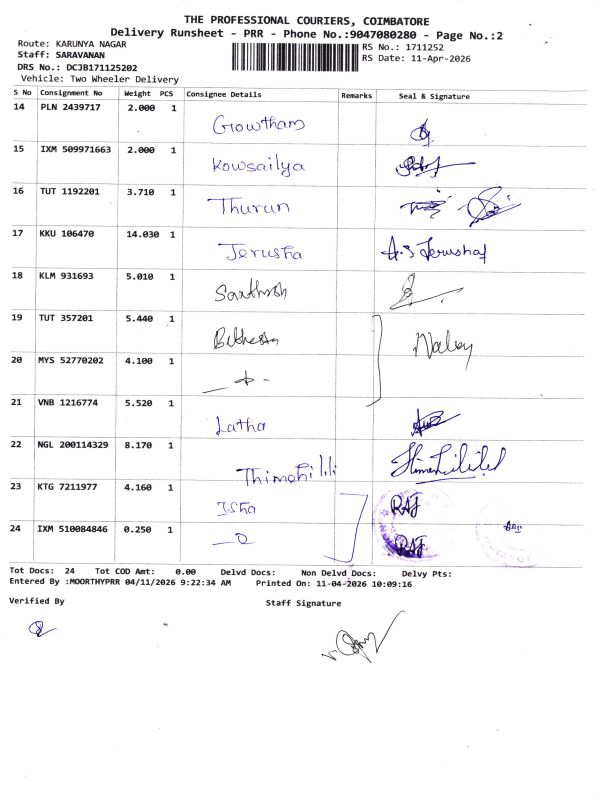 THE PROFESSIONAL COURIERS, COIMBATORE
Delivery Runsheet - PRR - Phone No.:9047080280 - Page No.:2
Route: KARUNYA NAGAR
RS No.: 1711252
Staff: SARAVANAN
RS Date: 11-Apr-2026
DRS No.: DCJB171125202
Vehicle: Two Wheeler Delivery
S No Consignment No Weight PCS Consignee Details Remarks Seal & Signature
14 PLN 2439717 2.000 1
Gowtham
15 IXM 509971663 2.000 1
Kowsailya
16 TUT 1192201 3.710 1
Thurun
17 KKU 106470 14.030 1
Jerusha A.S Jerusha
18 KLM 931693 5.010 1
Santhosh
19 TUT 357201 5.440 1
20 MYS 52770202 4.100 1
21 VNB 1216774 5.520 1
Latha
22 NGL 200114329 8.170 1
23 KTG 7211977 4.160 1
Isha RAJ
24 IXM 510084846 0.250 1
RAJ
Tot Docs: 24 Tot COD Amt: 0.00 Delvd Docs: Non Delvd Docs: Delvy Pts:
Entered By :MOORTHYPRR 04/11/2026 9:22:34 AM Printed On: 11-04-2026 10:09:16
Verified By Staff Signature